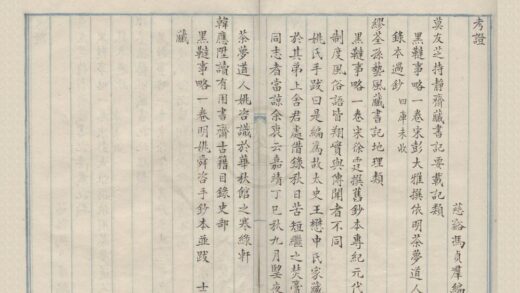 考證
慈谿馮貞羣編
莫友芝持靜齋藏書記要載記類
黑韃事略一卷宋彭大雅撰依明茶夢道人
錄本過鈔四庫未收
繆荃孫藝風藏書記地理類
黑韃事略一卷宋徐霆撰舊鈔本專紀元代
制度風俗語皆翔實與傳聞者不同
姚氏手跋曰是編爲故太史王懋中氏家藏
於其弟上舍君處借錄秋日苦短繼之焚膏
同志者當諒余衷云嘉靖丁巳秋九月望夜
茶夢道人姚咨識於華秋館之寒綠軒
韓應陛讀有用書齋古籍目錄史部
黑韃事略一卷明姚舜咨手鈔本並跋 士
藏